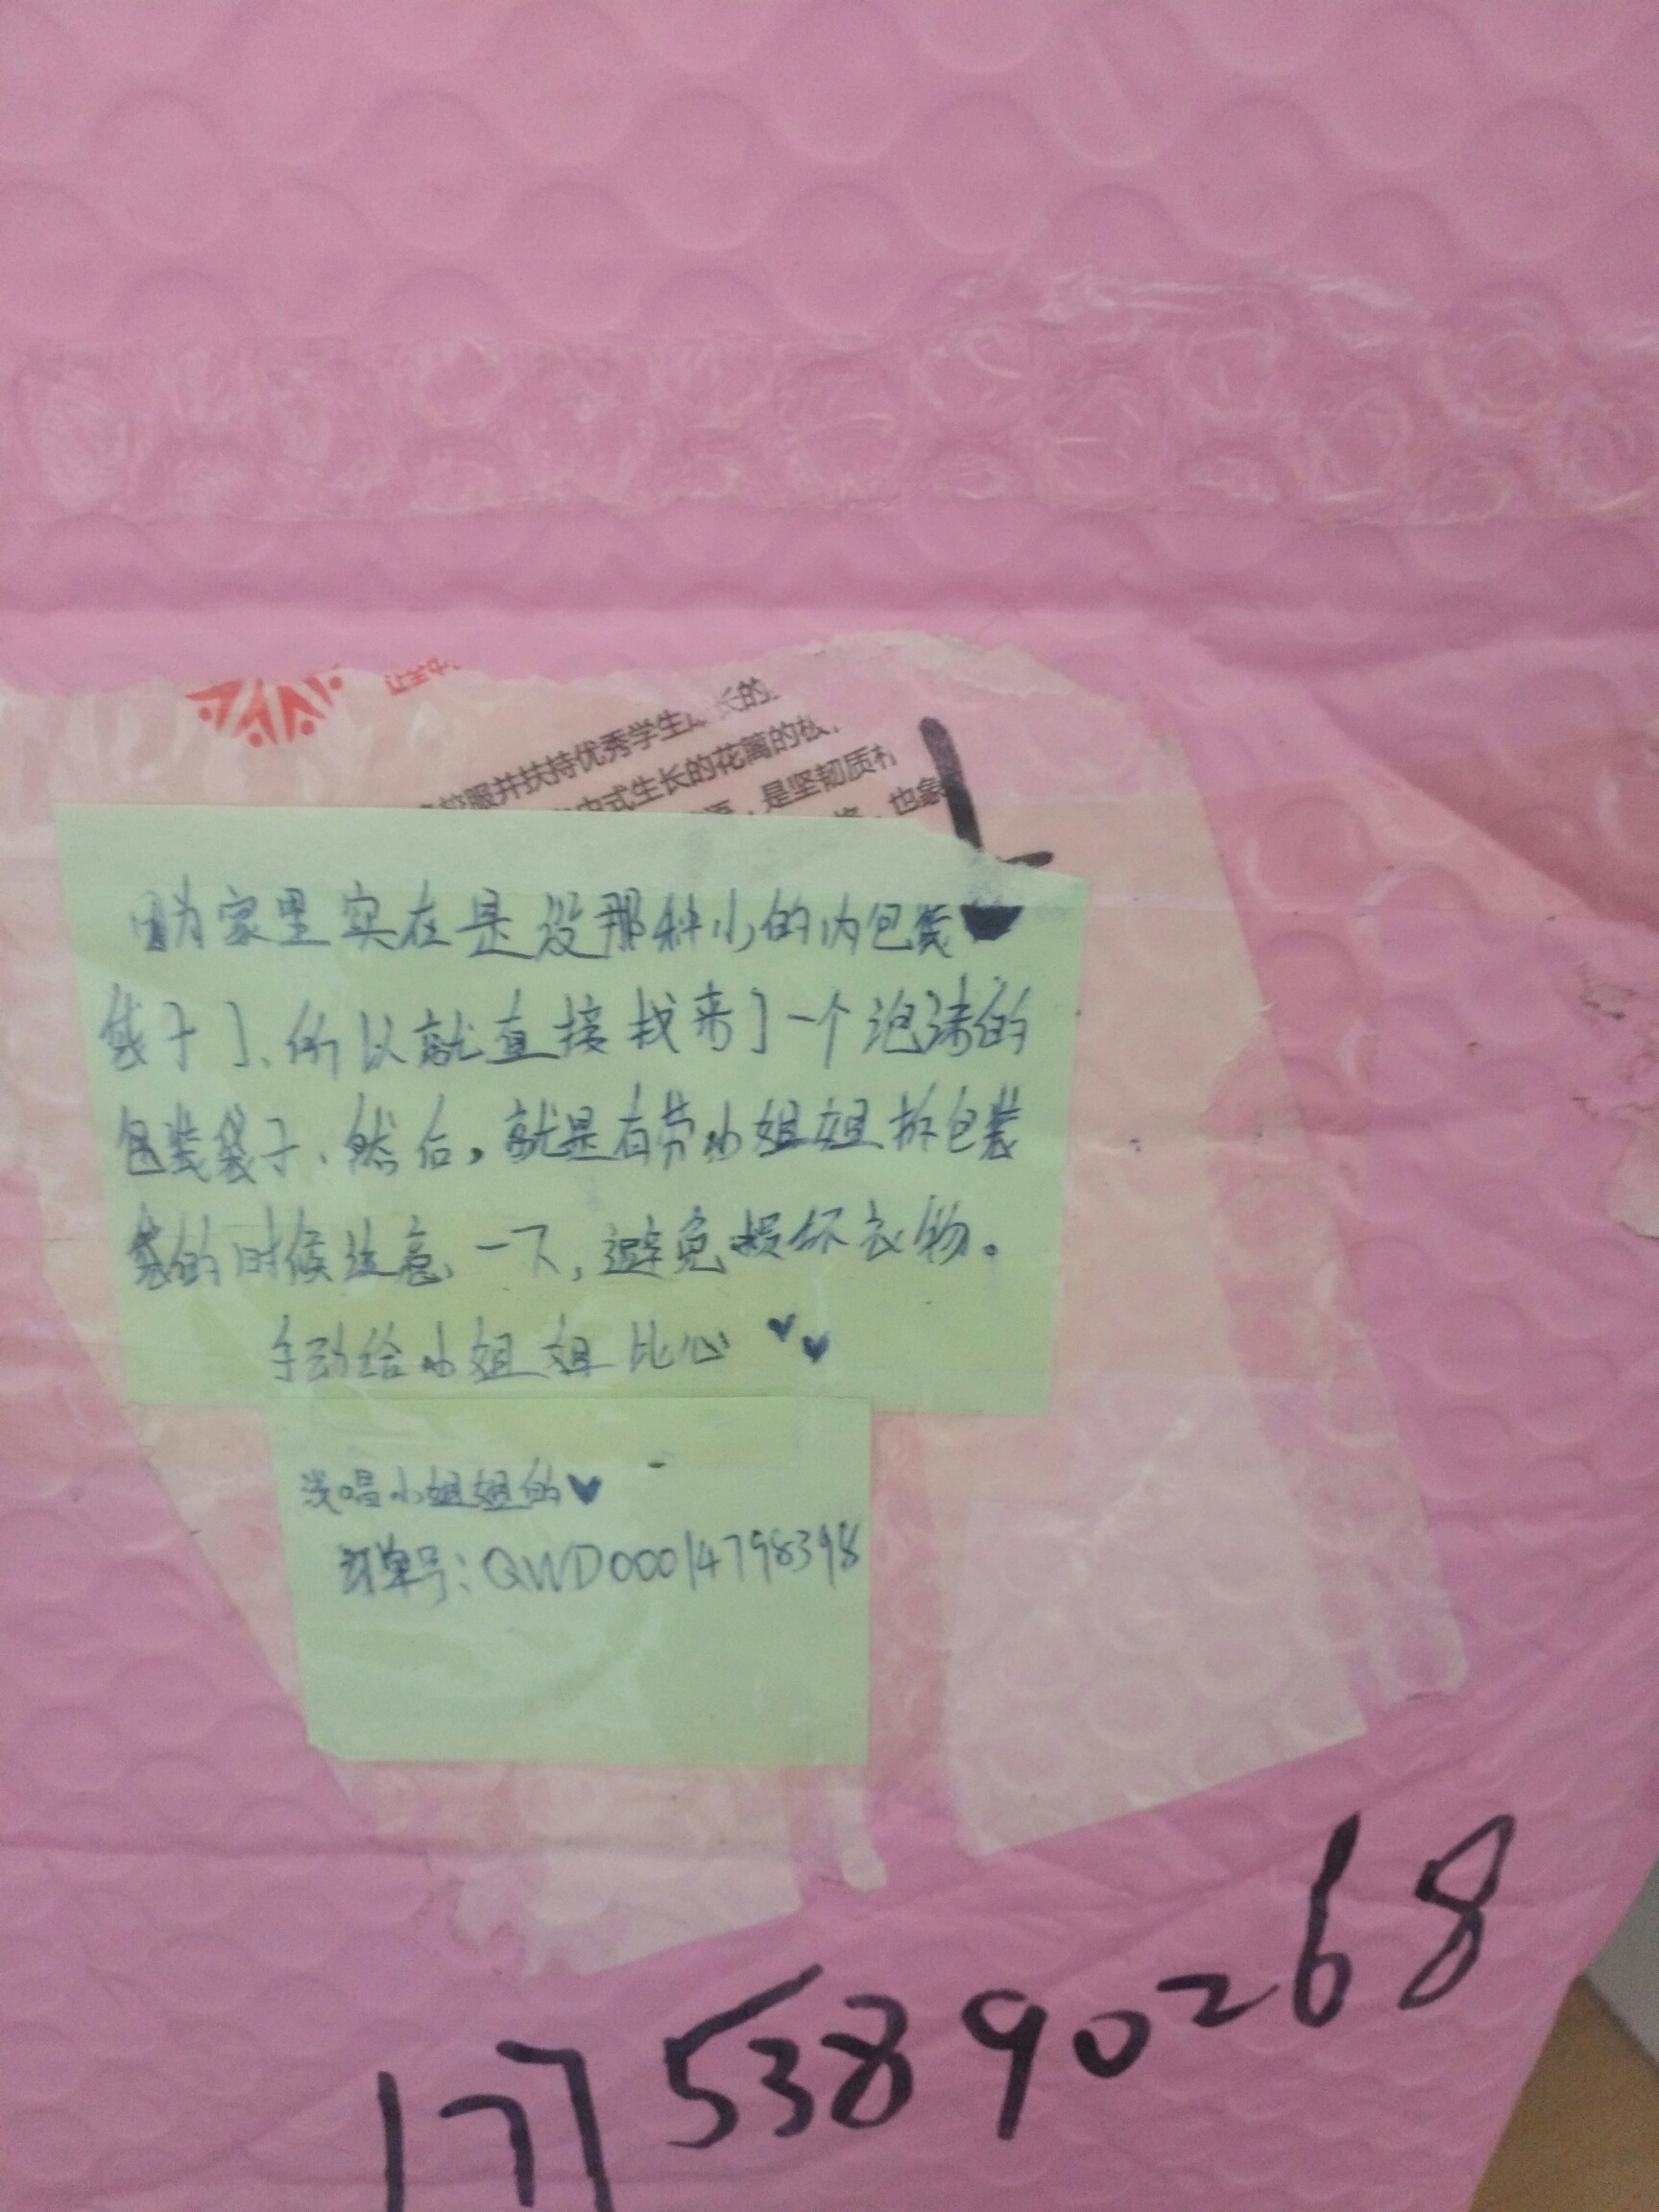 校服并扶持优秀学生成长的
中式生长的花篇的校
，是坚韧质朴
，也象
因为家里实在是没那种小的内包装
袋子了、所以就直接找来了一个泡沫的
包装袋子、然后，就是有劳小姐姐拆包装
袋的时候注意一下，避免损坏衣物。
手动给小姐姐比心 ♥♥
浅唱小姐姐的♥
订单号：QWD00014798398
17753890268